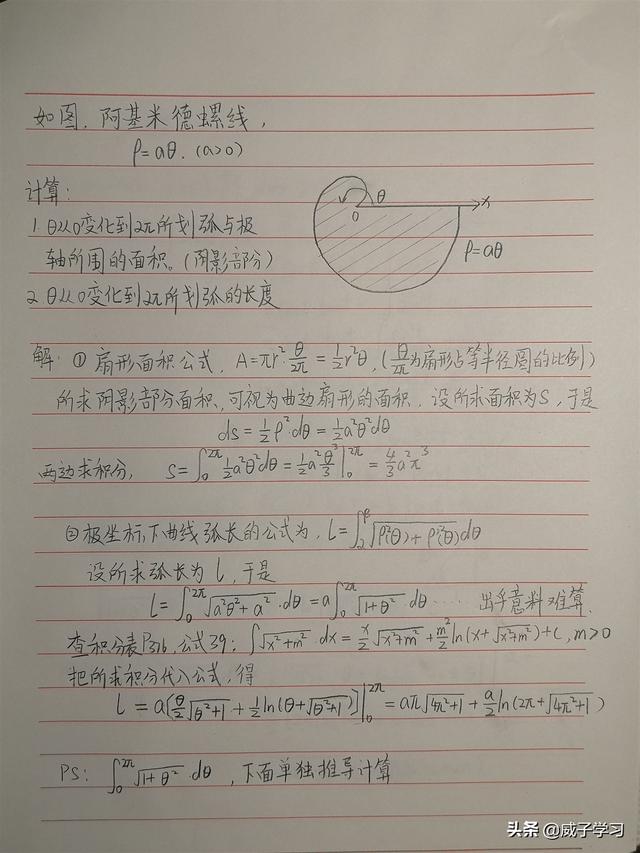 如图. 阿基米德螺线,
ρ=aθ. (a>0)
计算:
1. θ从0变化到2π所划弧与极
轴所围的面积。(阴影部分)
2. θ从0变化到2π所划弧的长度
θ
0
x
ρ=aθ
解: ① 扇形面积公式, A=πr²·θ/2π=½r²θ, (θ/2π为扇形占等半径圆的比例)
所求阴影部分面积, 可视为曲边扇形的面积. 设所求面积为S, 于是
ds=½ρ²·dθ=½a²θ²dθ
两边求积分, S=∫₀^2π ½a²θ²dθ=½a²θ³/3|₀^2π=4/3a²π³
②极坐标下曲线弧长的公式为, L=∫_α^β √(ρ²(θ)+ρ'²(θ))dθ
设所求弧长为l, 于是
l=∫₀^2π √(a²θ²+a²)·dθ=a∫₀^2π √(1+θ²)·dθ ······ 出乎意料难算.
查积分表P316, 公式39: ∫√(x²+m²)·dx=x/2√(x²+m²)+m²/2 ln(x+√(x²+m²))+C, m>0
把所求积分代入公式, 得
l=a[θ/2√(θ²+1)+½ln(θ+√(θ²+1))]|₀^2π=aπ√(4π²+1)+a/2 ln(2π+√(4π²+1))
PS: ∫₀^2π √(1+θ²)·dθ, 下面单独推导计算
头条 @威子学习